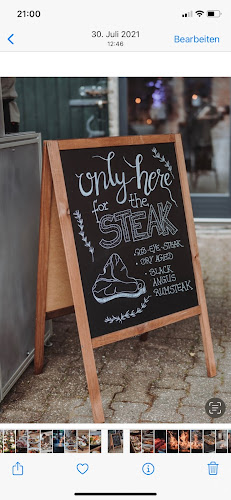 21:00
30. Juli 2021
12:46
Bearbeiten
only here
for the
STEAK
· RIB-EYE-STEAK
· DRY AGED
· BLACK
ANGUS
RUMSTEAK